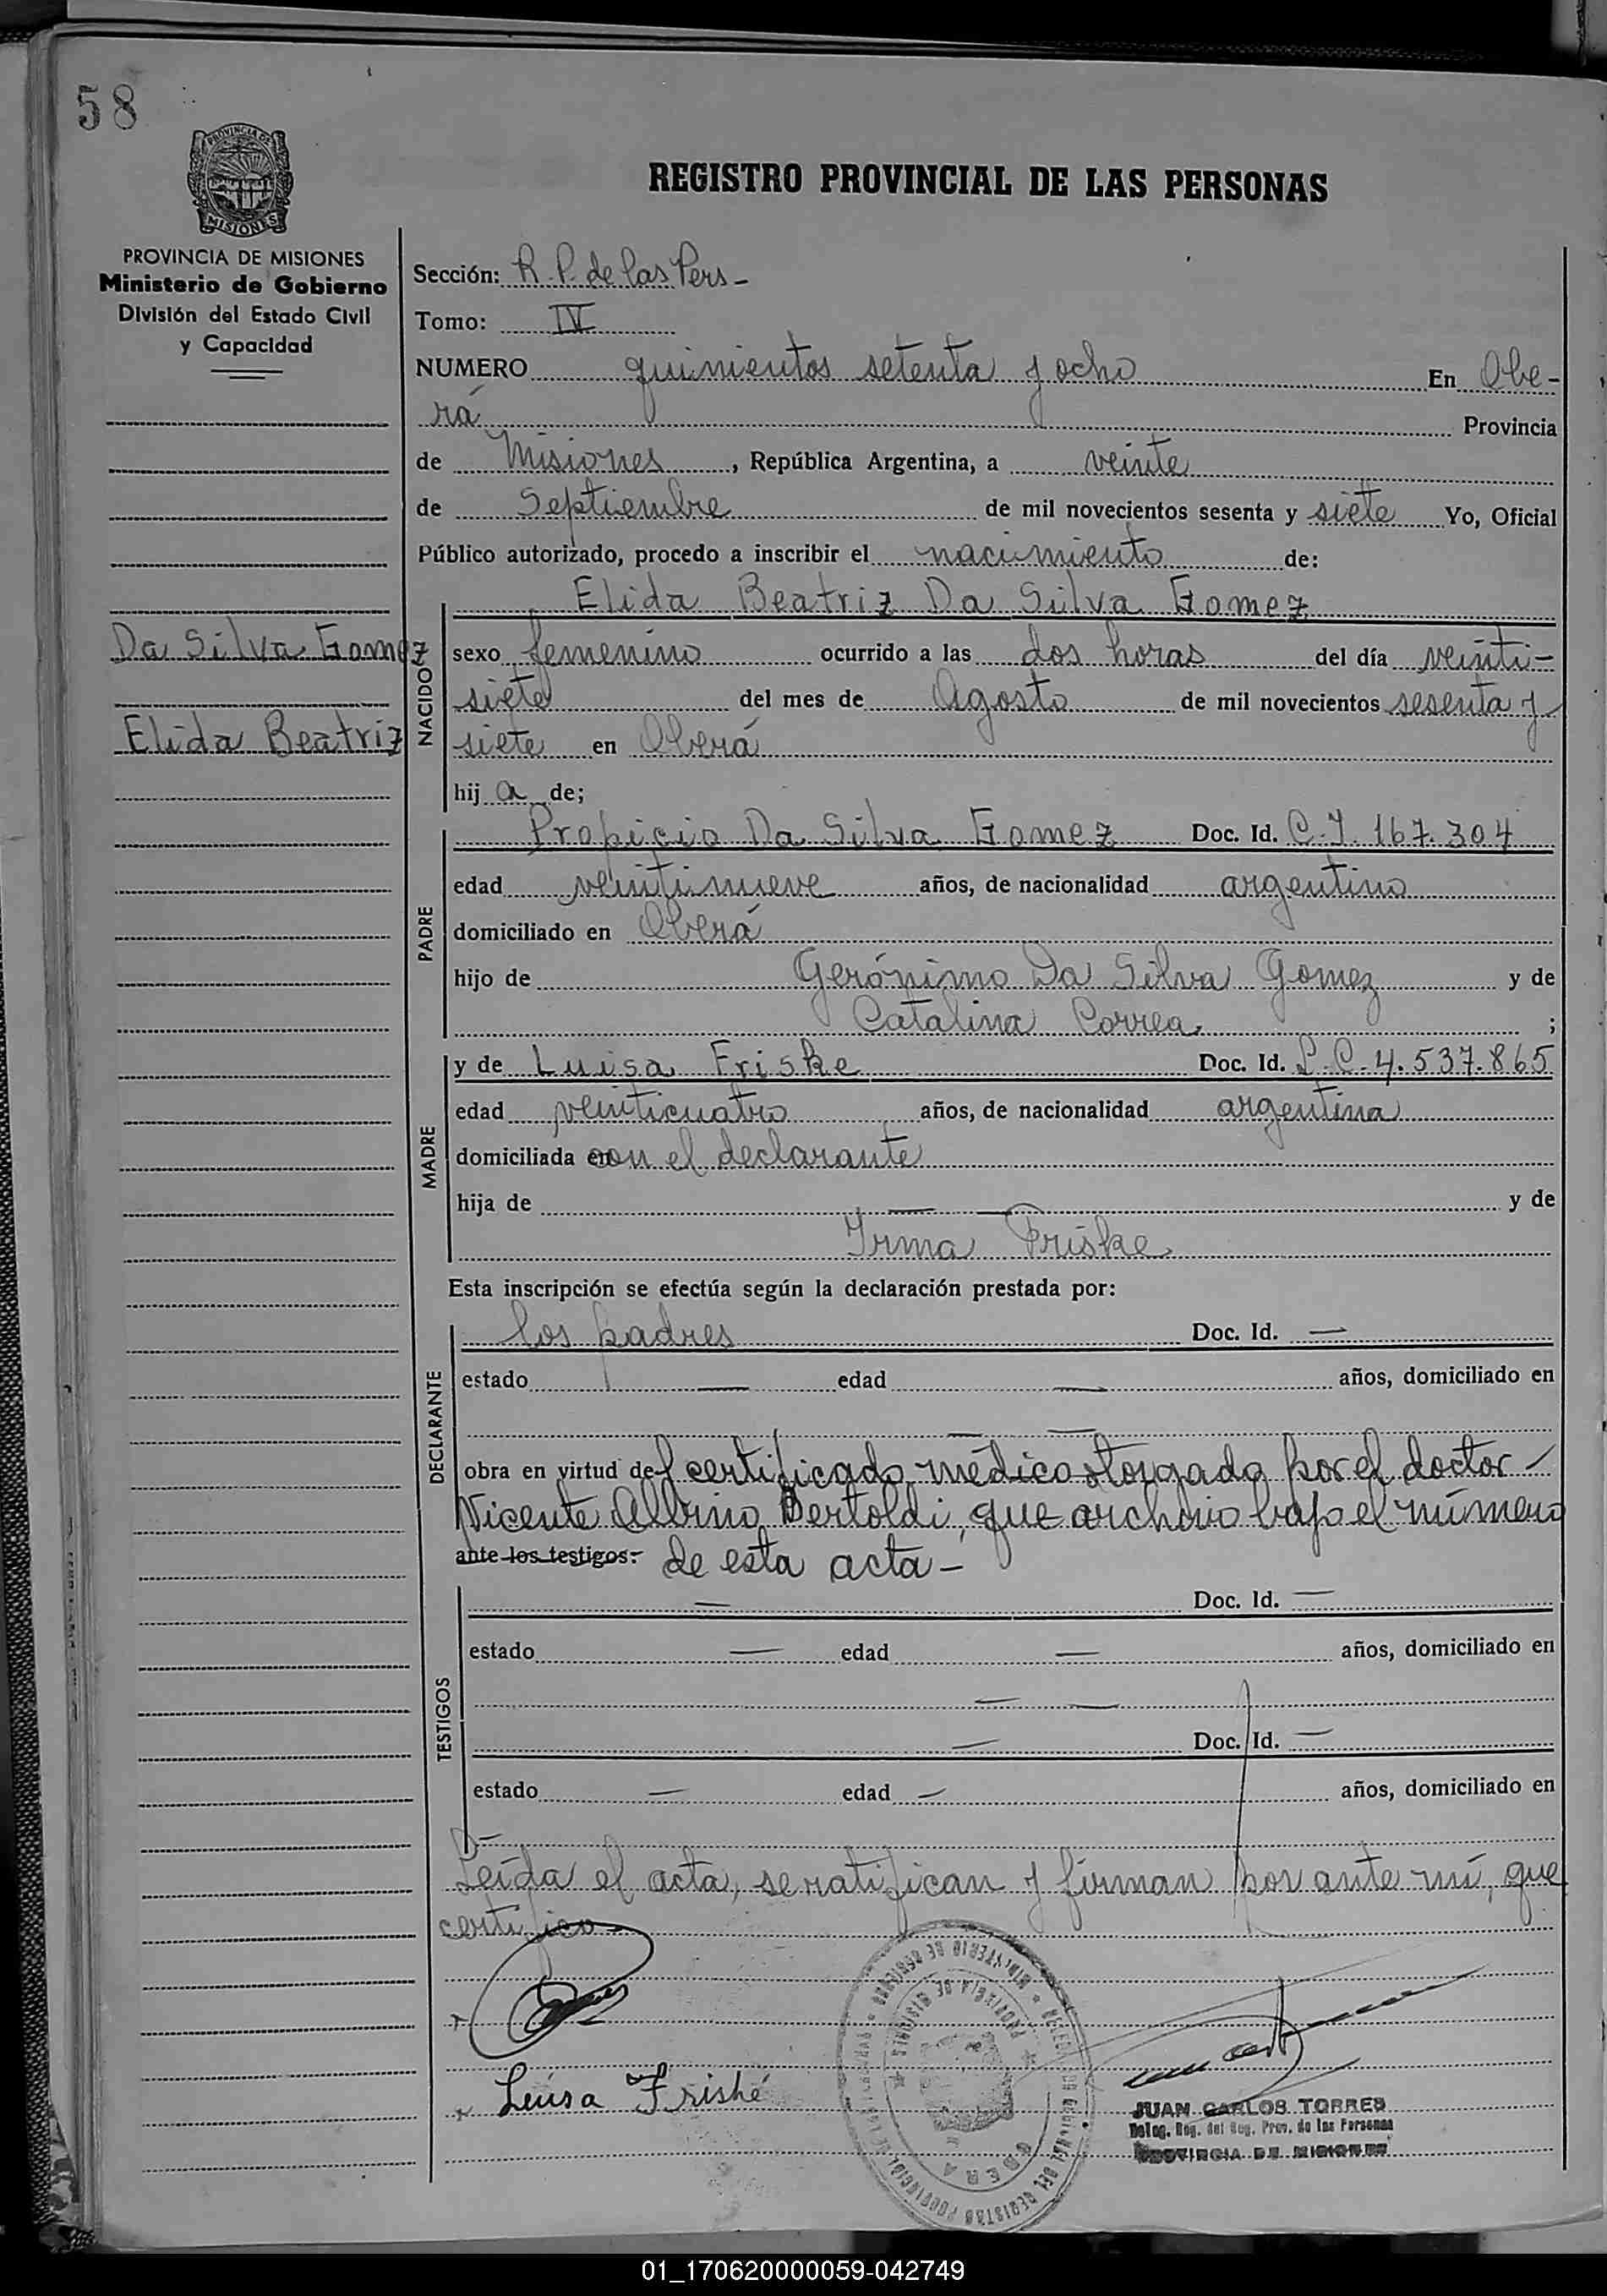 58
PROVINCIA DE
MISIONES
REGISTRO PROVINCIAL DE LAS PERSONAS
PROVINCIA DE MISIONES
Ministerio de Gobierno
División del Estado Civil
y Capacidad
Sección: R. P. de las Pers -
Tomo: IV
NUMERO quinientos setenta y ocho En Obe-
rá Provincia
de Misiones, República Argentina, a veinte
de Septiembre de mil novecientos sesenta y siete Yo, Oficial
Público autorizado, procedo a inscribir el nacimiento de:
Elida Beatriz Da Silva Gomez
Da Silva Gomez
Elida Beatriz
NACIDO
sexo femenino ocurrido a las dos horas del día veinti-
siete del mes de Agosto de mil novecientos sesenta y
siete en Oberá
hij a de;
PADRE
Propicio Da Silva Gomez Doc. Id. C. I. 167.304
edad veintinueve años, de nacionalidad argentino
domiciliado en Oberá
hijo de Gerónimo Da Silva Gomez y de
Catalina Correa ;
MADRE
y de Luisa Friske Doc. Id. L. C. 4.537.865
edad veinticuatro años, de nacionalidad argentina
domiciliada en con el declarante
hija de — — y de
Irma Friske
Esta inscripción se efectúa según la declaración prestada por:
DECLARANTE
los padres Doc. Id. —
estado — edad — años, domiciliado en
— —
obra en virtud del certificado médico otorgado por el doctor -
Vicente Albino Bertoldi, que archivo bajo el número
ante los testigos: de esta acta -
TESTIGOS
— Doc. Id. —
estado — edad — años, domiciliado en
— —
— Doc. Id. —
estado — edad — años, domiciliado en
Leída el acta, se ratifican y firman por ante mí, que
certifico -
Luisa Frishe
MINISTERIO DE GOBIERNO
PROVINCIA DE MISIONES
OBERA
JUAN CARLOS TORRES
Deleg. Reg. del Reg. Prov. de las Personas
PROVINCIA DE MISIONES
01_170620000059-042749